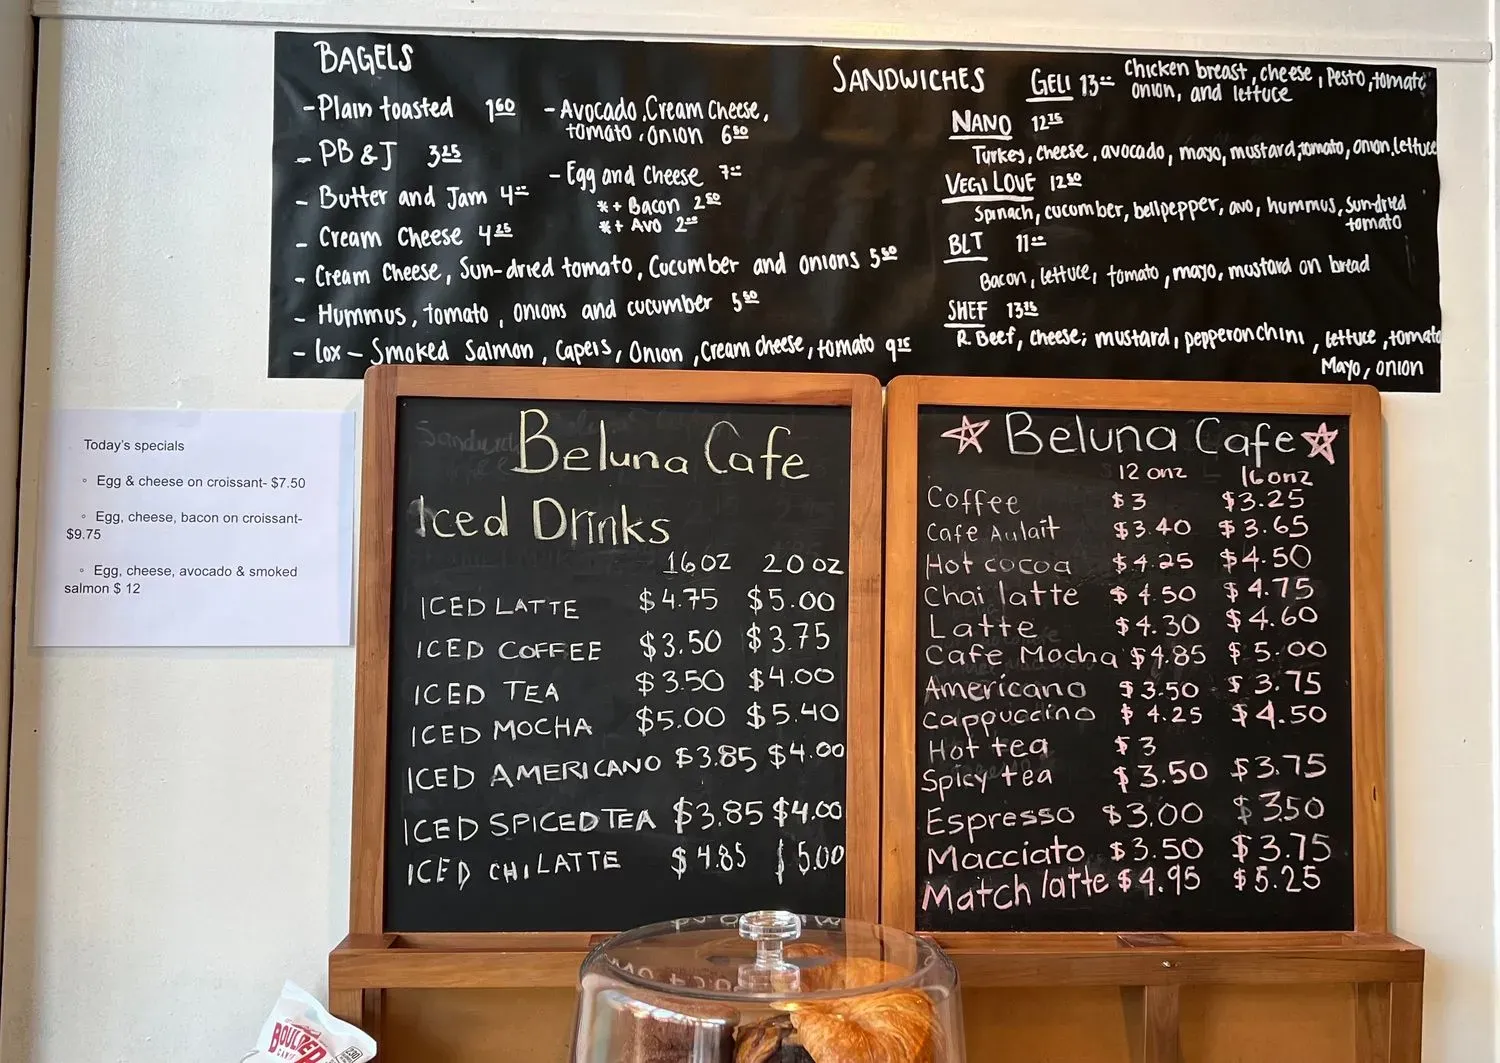 BAGELS
- Plain toasted 1.60
- PB & J 3.25
- Butter and Jam 4.00
- Cream Cheese 4.25
- Cream Cheese, Sun-dried tomato, Cucumber and onions 5.50
- Hummus, tomato, onions and cucumber 5.50
- Lox - Smoked Salmon, Capers, Onion, Cream cheese, tomato 9.75
- Avocado, Cream Cheese,
tomato, onion 6.50
- Egg and Cheese 7.00
* + Bacon 2.50
* + Avo 2.00
SANDWICHES
GELI 13.00 Chicken breast, cheese, Pesto, tomato
onion, and lettuce
NANO 12.75
Turkey, cheese, avocado, mayo, mustard, tomato, onion, lettuce
VEGI LOVE 12.50
Spinach, cucumber, bellpepper, avo, hummus, sun-dried
tomato
BLT 11.00
Bacon, lettuce, tomato, mayo, mustard on bread
SHEF 13.75
R. Beef, cheese, mustard, pepperonchini, lettuce, tomato
Mayo, onion
Today's specials
◦ Egg & cheese on croissant- $7.50
◦ Egg, cheese, bacon on croissant-
$9.75
◦ Egg, cheese, avocado & smoked
salmon $ 12
Beluna Cafe
Iced Drinks
16 OZ 20 OZ
ICED LATTE $4.75 $5.00
ICED COFFEE $3.50 $3.75
ICED TEA $3.50 $4.00
ICED MOCHA $5.00 $5.40
ICED AMERICANO $3.85 $4.00
ICED SPICED TEA $3.85 $4.00
ICED CHI LATTE $4.85 $5.00
Beluna Cafe
12 onz 16 onz
Coffee $3 $3.25
Cafe Aulait $3.40 $3.65
Hot cocoa $4.25 $4.50
Chai latte $4.50 $4.75
Latte $4.30 $4.60
Cafe Mocha $4.85 $5.00
Americano $3.50 $3.75
Cappuccino $4.25 $4.50
Hot tea $3
Spicy tea $3.50 $3.75
Espresso $3.00 $3.50
Macciato $3.50 $3.75
Match latte $4.95 $5.25
BOULDER